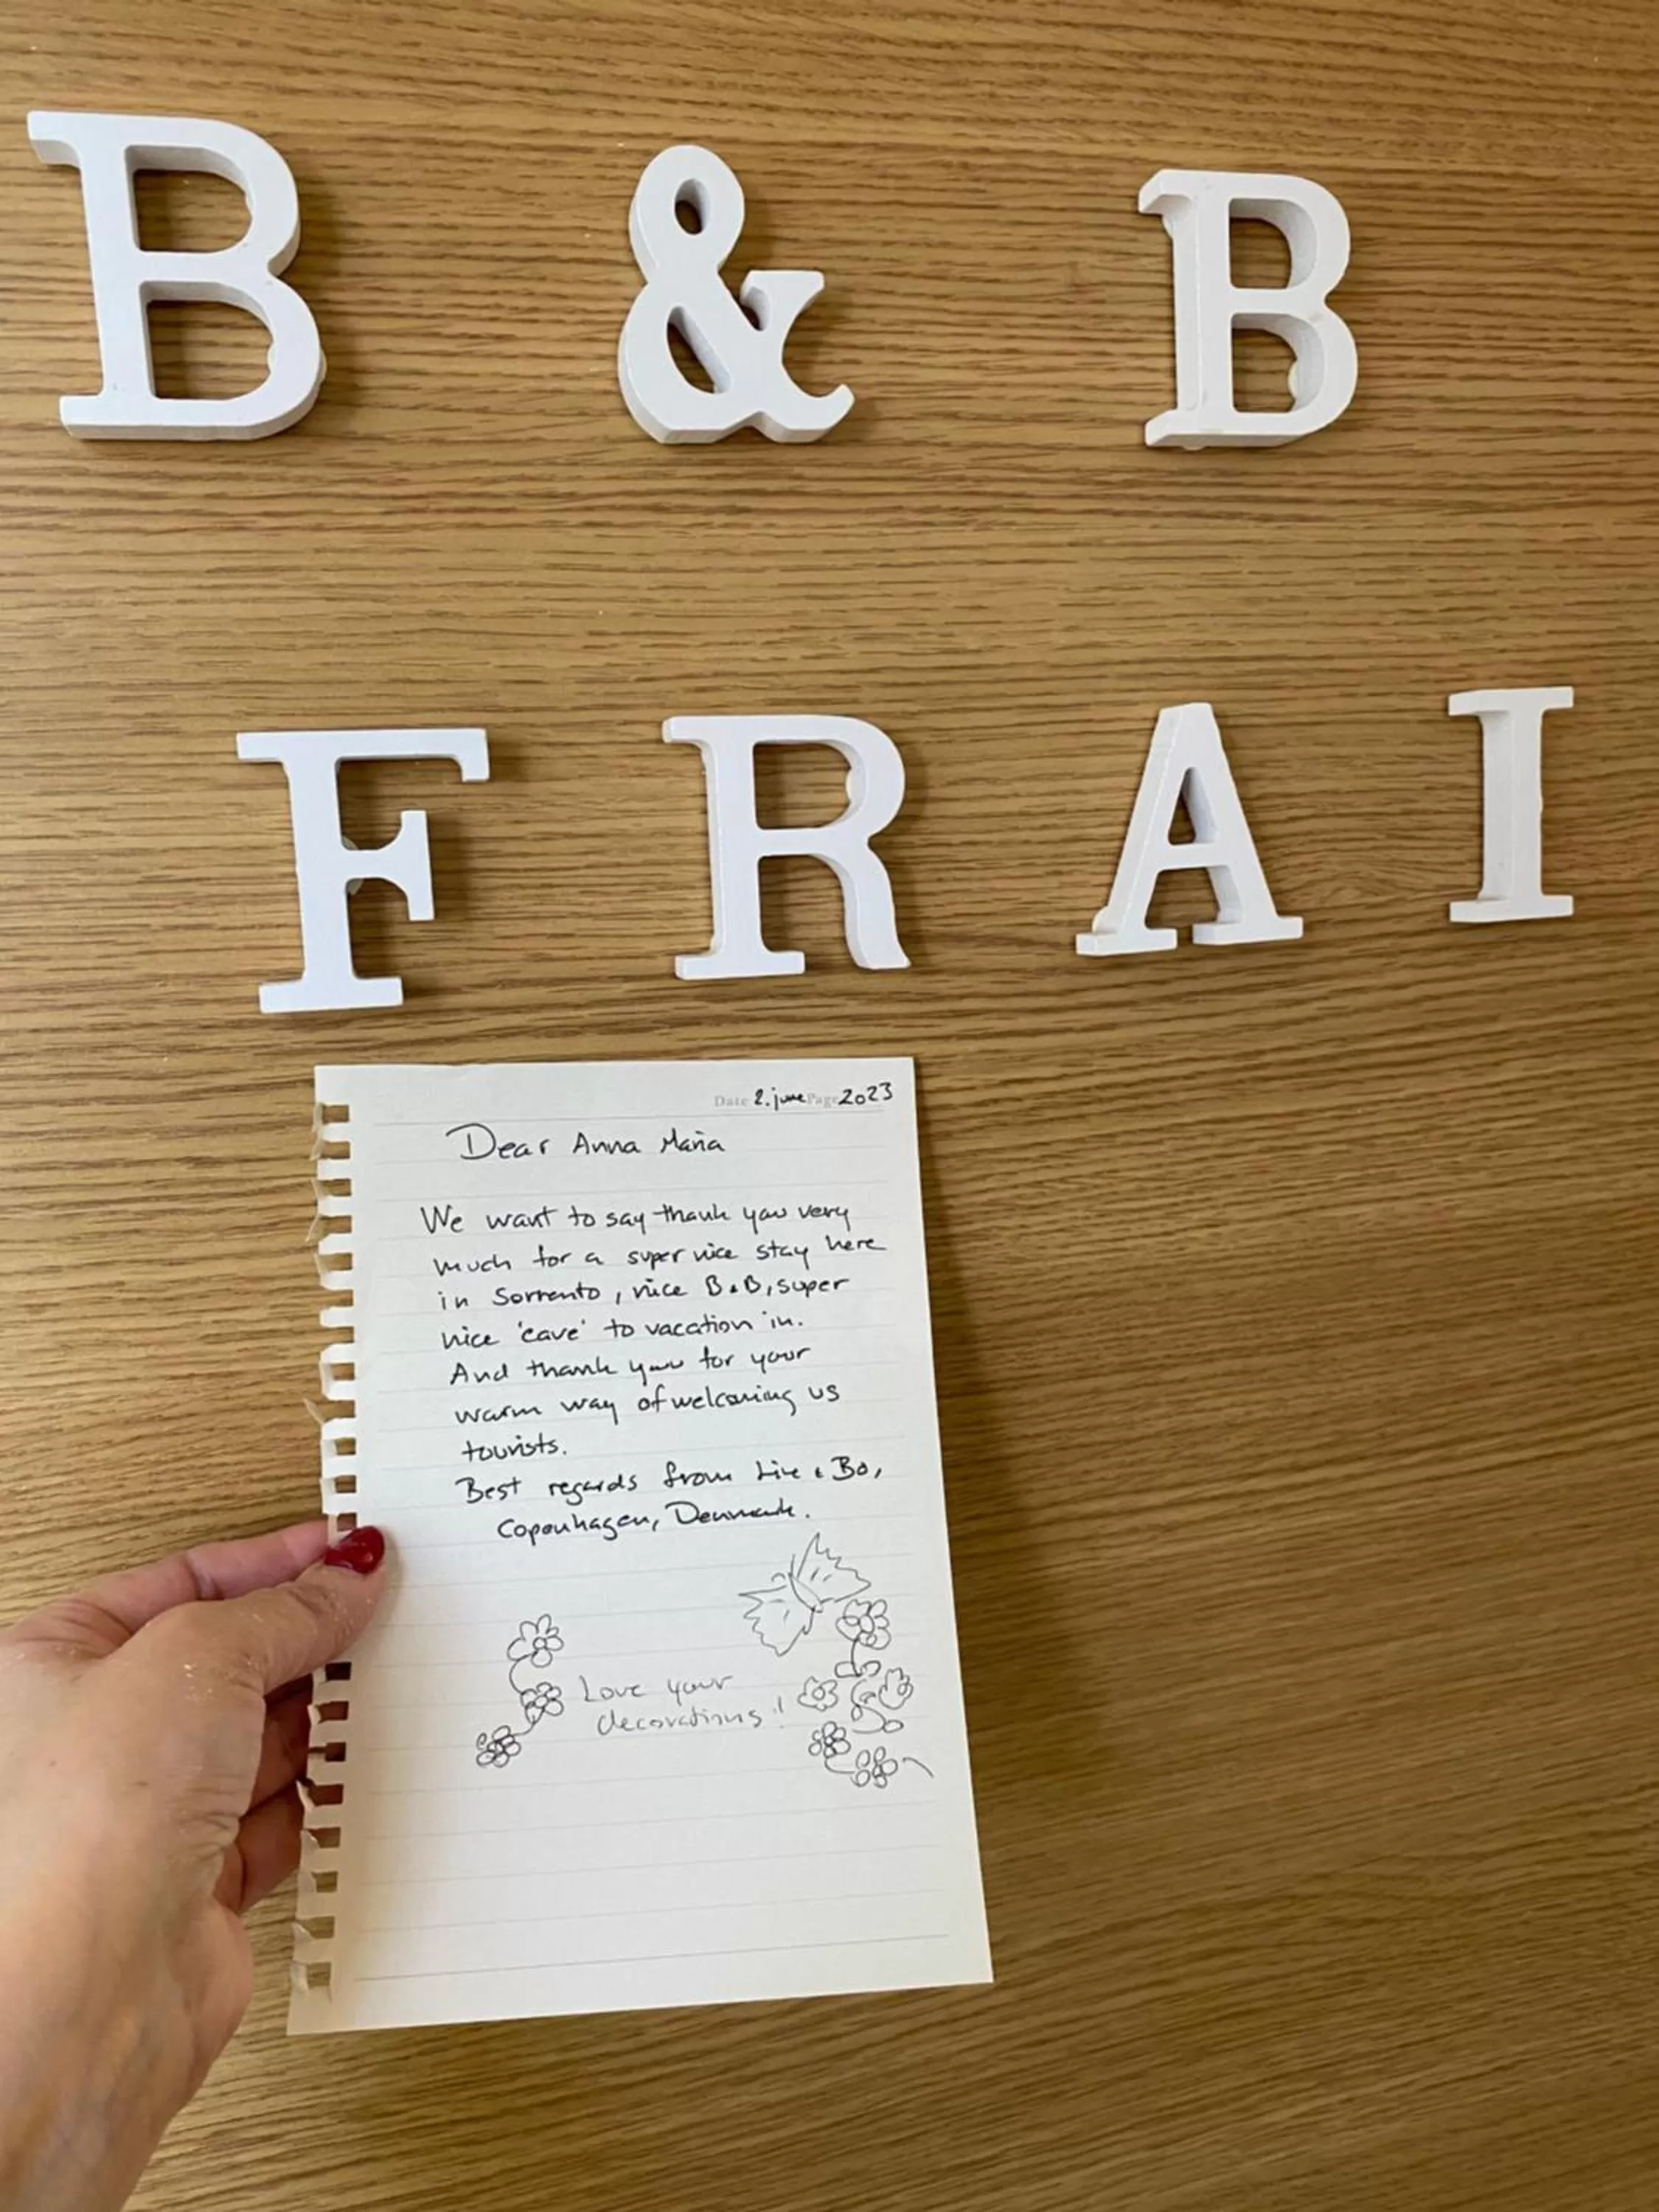 B & B
FRAI
Date 2. june Page 2023
Dear Anna Maria
We want to say thank you very
much for a super nice stay here
in Sorrento, nice B&B, super
nice 'cave' to vacation in.
And thank you for your
warm way of welcoming us
tourists.
Best regards from & Bo,
Copenhagen, Denmark.
Love your
decorations!